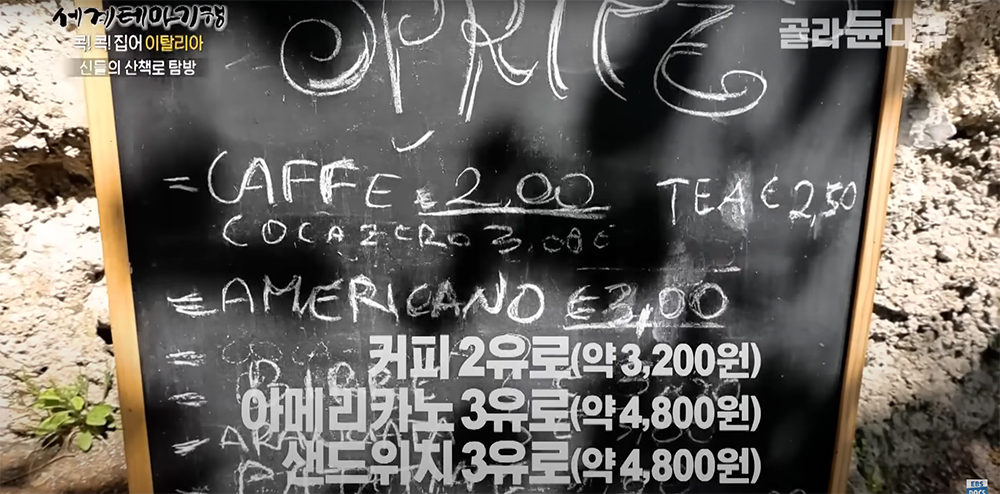 세계테마기행
콕! 콕! 집어 이탈리아
신들의 산책로 탐방
골라듄다큐
SPRITZ
= CAFFE € 2,00 TEA € 2,50
COCA ZERO 3,00€
= AMERICANO €3,00
커피 2유로(약 3,200원)
아메리카노 3유로(약 4,800원)
샌드위치 3유로(약 4,800원)
EBS
DOCS